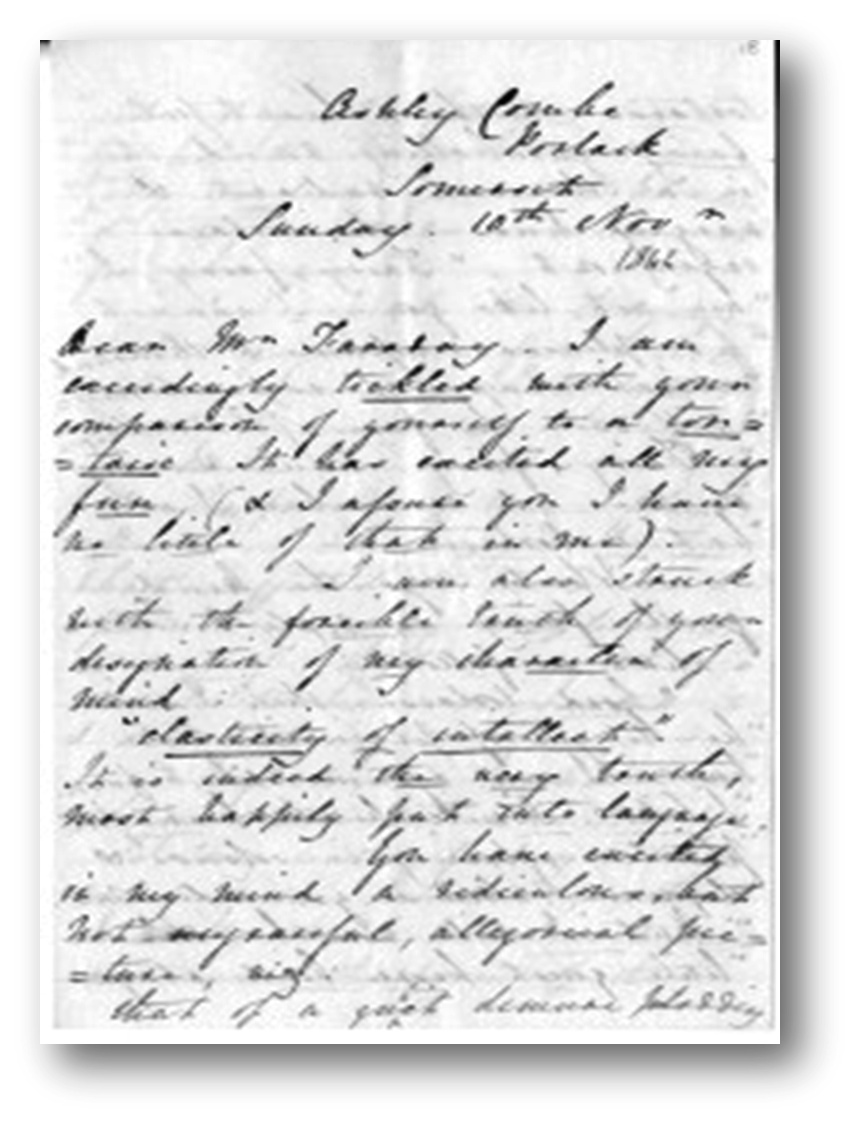 18
Ashley Combe
Porlock
Somerset
Sunday. 10th Nov r
184
Dear Mr. Faraday. I am
exceedingly tickled with your
comparison of yourself to a tor=
=toise It has excited all my
fun, (& I assure you I have
no little of that in me).
I am also struck
with the forcible truth of your
designation of my character of
mind
"elasticity of intellect".
It is indeed the very truth,
most happily put into language.
You have excited
in my mind a ridiculous, but
not ungraceful, allegorical pic=
=ture, viz:
that of a quiet demure plodding